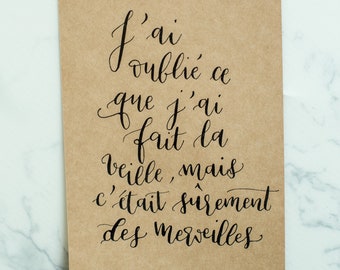 J'ai
oublié ce
que j'ai
fait la
veille, mais
c'était sûrement
des merveilles